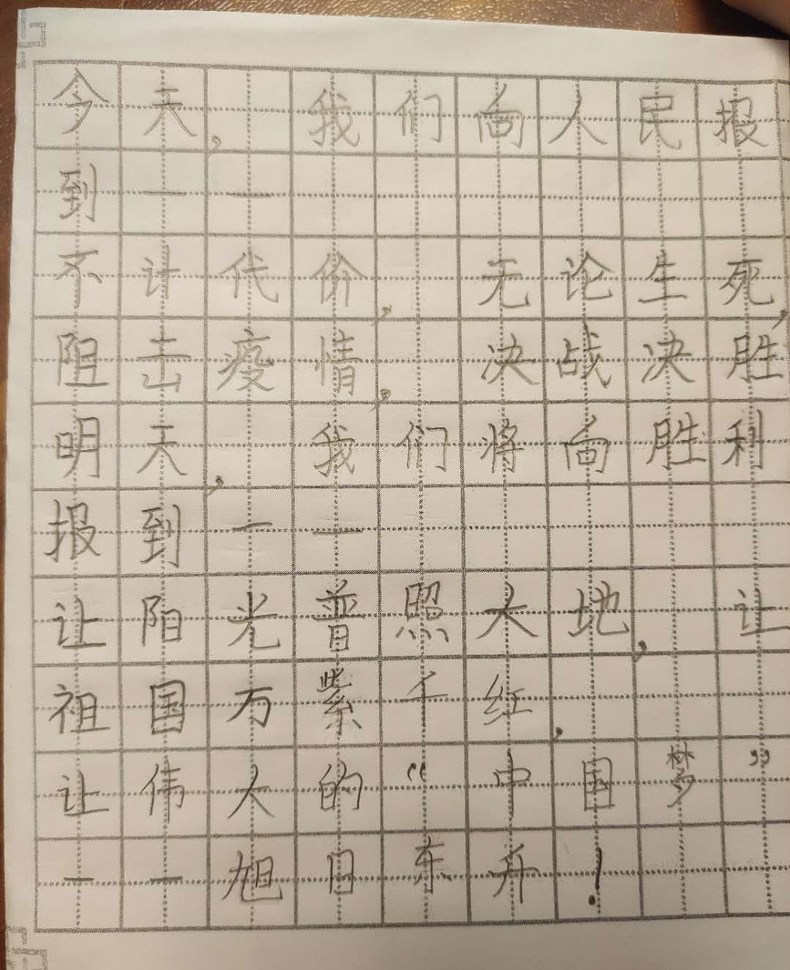 今天，我们向人民报
到一一
不计代价，无论生死，
阻击疫情，决战决胜
明天，我们将向胜利
报到一一
让阳光普照大地，让
祖国万紫千红，
让伟大的“中国梦”
一一旭日东升！